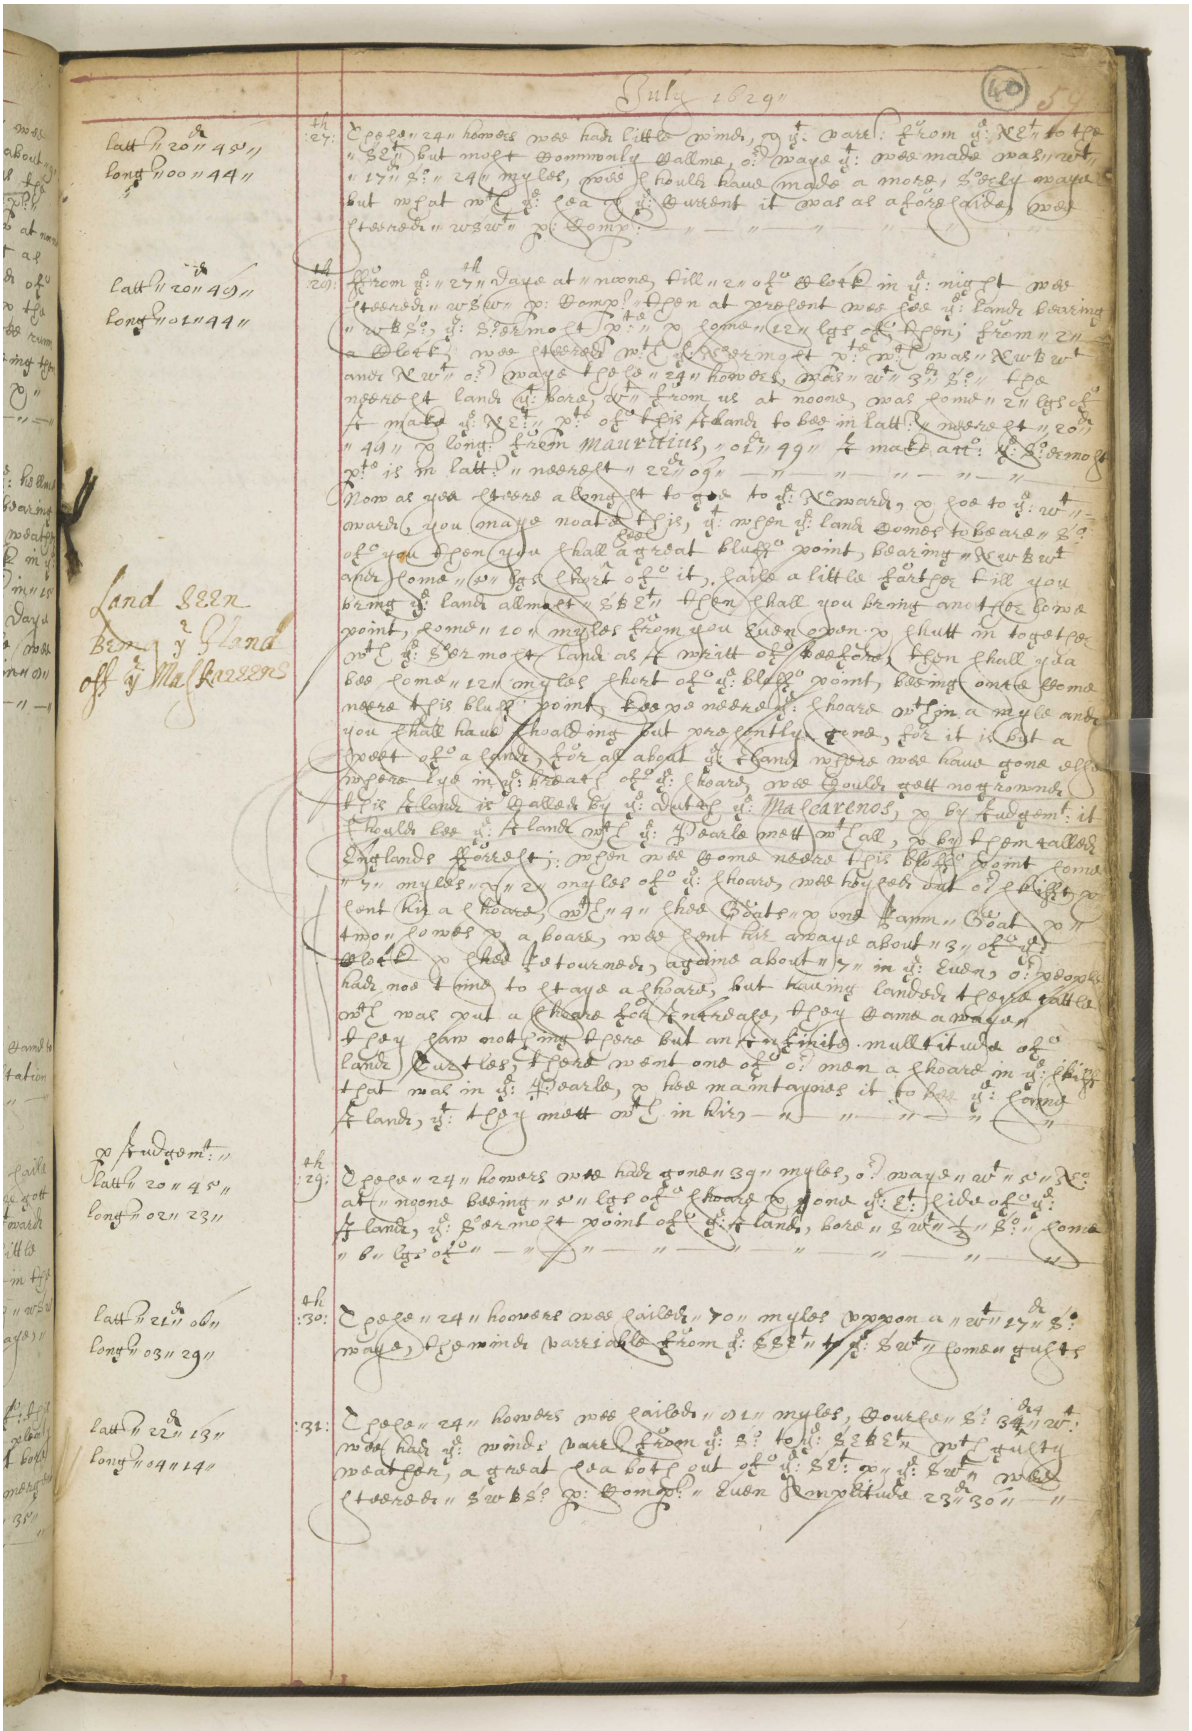 July 1629
40 59
latt" 20" 45"
long" 00" 44"
th
:27:
These" 24" howers wee had little wind, & yt: varr: from ye: NEt to the
" SEt but most Commonly Callme, or waye yt: wee made was" wt"
" 17" So" 24" myles, wee should have made a more, Soerly waye
but what wth ye: sea & ye: Current it was as aforesaide, wee
steered" wswt" p: Comp:
latt" 20" 49"
long" 01" 44"
th
:28:
ffrom ye: 27th Daye at" noone, till" 2" of Clock in ye: night wee
steered" wsw" p: Comp: then at present wee see ye: land bearing
" wBSo, ye: Soermost pte: " & some" 12" lgs of, then, from" 2"
a Clock, wee steered wth ye: Noeringst pte wch was" NwBwt
and Nwt" or waye these" 24" howers, was" wt" 3" So" the
neerest land yt: bore, wt" from us at noone, was some" 2" lgs of
I make ye: NEt" pte of this Iland to bee in latt: neerest" 20"
" 49" & long: from Mauritius, " 01" 49" I make acco: ye: Soermost
pte is in latt: " neerest" 22" 09"
Now as yee steere alongst to goe to ye: Noward, & soe to ye: wt"
ward, you maye noate this, yt: when ye: land Comes to beare" So
of you then you shall see a great bluff point, bearing" NwBwt
and some" 5" lgs short of it, saile a little farther till you
bring ye: land allmost" SBEt" then shall you bring another lowe
point, some" 10" myles from you Even open & shutt in together
wth ye: Soermost land as I writt of beefore, then shall you
bee some" 12" myles short of ye: bluff point, beeing once Come
neere this bluff point, keepe neere ye: shoare wthin a myle and
you shall have shoalding but presently gone, for it is but a
speet of a sand, for all about ye: Iland where wee have gone else
where lye in ye: breath of ye: shoare, wee Could gett no grownd
this Iland is Called by ye: dutch ye: Mascarenos, & by Iudgemt: it
should bee ye: Iland wch ye: Pearle mett wth all, & by them called
Englands fforrest; when wee Come neere this bluff point some
" 7" myles" & " 2" myles of ye: shoare, wee hoysed out or skiff, &
sent hir a shoare, wth" 4" shee Goats" & one Ramm" Goat &"
two" sowes & a boare, wee sent hir awaye about" 3" of ye:
Clock & shee Retourned, againe about" 7" in ye: Even, or people
had noe time to staye a shoare, but having landed theire cattle
wch was put a shoare for Increase, they Came awaye"
they saw nothing there but an Infinite multitude of
land Turtles, there went one of or men a shoare in ye: skiff
that was in ye: Pearle, & hee maintaynes it to bee ye: same
Iland, yt: they mett wth in hir,
Land SEEN
Being ye Iland
off ye Maskareens
p Iudgemt: "
latt" 20" 45"
long" 02" 23"
th
:29:
These" 24" howers wee had gone" 39" myles, or waye" wt" 5" No
at" noone beeing" 5" lgs of shoare & gone ye: Et: side of ye:
Iland, ye: Soermost point of ye: Iland, bore" Swt" ½" So" some
" 6" lgs of"
latt" 21" 06"
long" 03" 29"
th
:30:
These" 24" howers wee sailed" 70" myles uppon a" wt" 17" So
waye, the wind varriable from ye: SSEt" to ye: Swt" some" gusts
latt" 22" 13"
long" 04" 14"
:31:
These" 24" howers wee sailed" 81" myles, Course" So 34" wt:
wee had ye: winds varr: from ye: So to ye: SEBEt" wth gusty
weather, a great sea both out of ye: SEt: &" ye: Swt" wee
steered" SwBSo p: Comp: " Even Amplitude 23" 30"